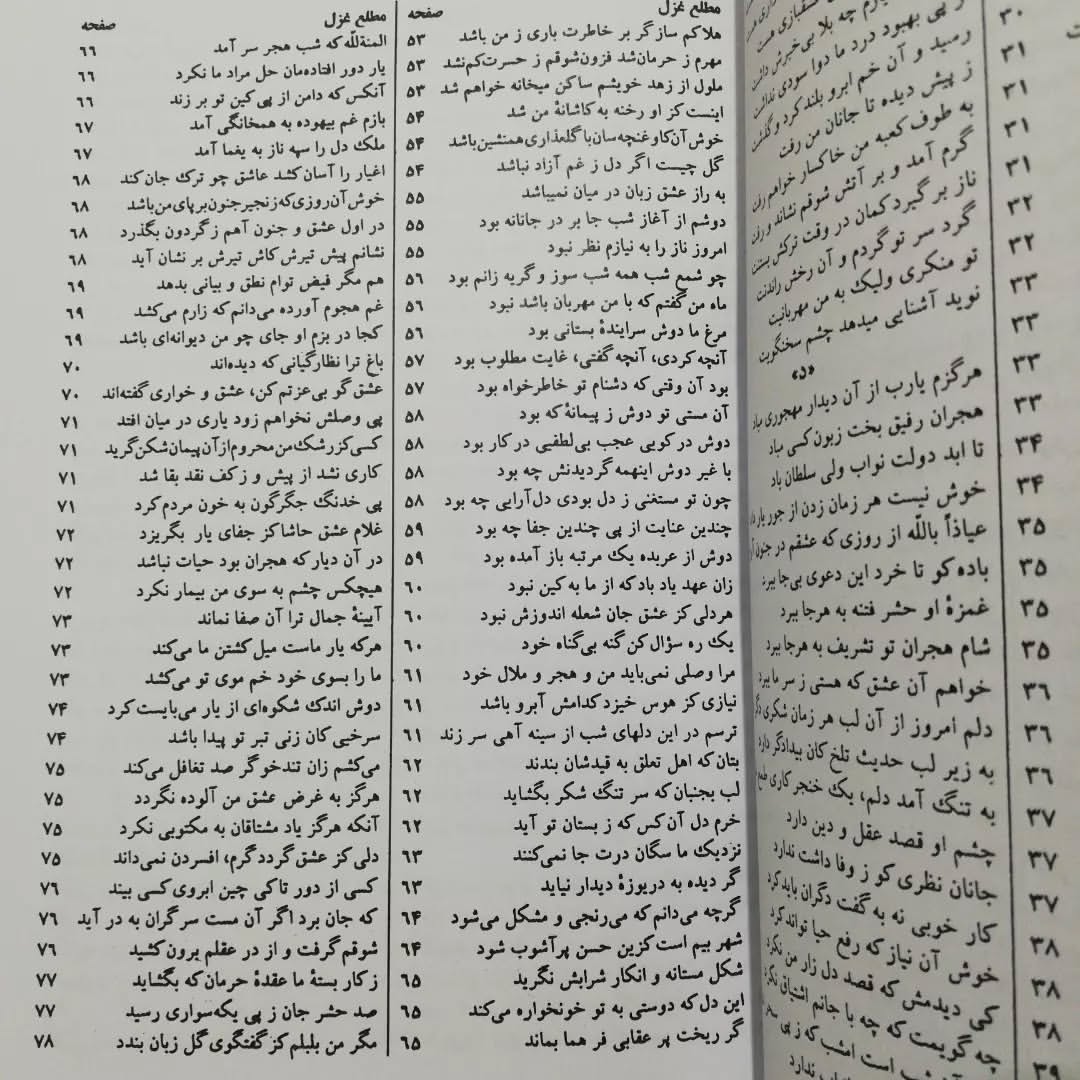 ۳۰
رسید و آن خم ابرو بلند کرد و گذشت ۳۱
ز پیش دیده تا جانان من رفت ۳۱
به طوف کعبه من خاکسار خواهم رفت ۳۱
گرم آمد و بر آتش شوقم نشاند و رفت ۳۱
ناز بر گیرد کمان در وقت ترکش بستنت ۳۲
گرد سر تو گردم و آن رخش راندنت ۳۲
تو منکری ولیک به من مهربانیت ۳۳
نوید آشنایی میدهد چشم سخنگویت ۳۳
«د»
هرگزم یارب از آن دیدار مهجوری مباد ۳۳
هجران رفیق بخت زبون کسی مباد ۳۳
تا ابد دولت نواب ولی سلطان باد ۳۴
خوش نیست هر زمان زدن از جور یار ۳۴
عیاذاً باللّه از روزی که عشقم در جنون ۳۵
باده کو تا خرد این دعوی بی‌جا ببرد ۳۵
غمزهٔ او حشر فتنه به هرجا ببرد ۳۵
شام هجران تو تشریف به هرجا ببرد ۳۵
خواهم آن عشق که هستی ز سر ما ببرد ۳۶
دلم امروز از آن لب هر زمان شکری ۳۶
به زیر لب حدیث تلخ کان بیدادگر دارد ۳۶
به تنگ آمد دلم، یک خنجر کاری ۳۷
چشم او قصد عقل و دین دارد ۳۷
جانان نظری کو ز وفا داشت ندارد ۳۷
کار خوبی نه به گفت دگران باید کرد ۳۸
خوش آن نیاز که رفع حیا تواند کرد ۳۸
کی دیدمش که قصد دل زار من نکرد ۳۸
چه گویمت که چه با جانم اشتیاق نکرد ۳۹
مطلع غزل صفحه
هلاکم ساز گر بر خاطرت باری ز من باشد ۵۳
مهرم ز حرمان شد فزون شوقم ز حسرت کم نشد ۵۳
ملول از زهد خویشم ساکن میخانه خواهم شد ۵۳
اینست کز او رخنه به کاشانهٔ من شد ۵۴
خوش آن کاو غنچه سان با گلعذاری همنشین باشد ۵۴
گل چیست اگر دل ز غم آزاد نباشد ۵۴
به راز عشق زبان در میان نمیباشد ۵۵
دوشم از آغاز شب جا بر در جانانه بود ۵۵
امروز ناز را به نیازم نظر نبود ۵۵
چو شمع شب همه شب سوز و گریه زانم بود ۵۶
ماه من گفتم که با من مهربان باشد نبود ۵۶
مرغ ما دوش سرایندهٔ بستانی بود ۵۶
آنچه کردی، آنچه گفتی، غایت مطلوب بود ۵۷
بود آن وقتی که دشنام تو خاطرخواه بود ۵۷
آن مستی تو دوش ز پیمانهٔ که بود ۵۸
دوش در کویی عجب بی‌لطفیی در کار بود ۵۸
با غیر دوش اینهمه گردیدنش چه بود ۵۸
چون تو مستغنی ز دل بودی دل‌آرایی چه بود ۵۸
چندین عنایت از پی چندین جفا چه بود ۵۹
دوش از عربده یک مرتبه باز آمده بود ۵۹
زان عهد یاد باد که از ما به کین نبود ۶۰
هر دلی کز عشق جان شعله اندوزش نبود ۶۰
یک ره سؤال کن گنه بی‌گناه خود ۶۰
مرا وصلی نمی‌باید من و هجر و ملال خود ۶۱
نیازی کز هوس خیزد کدامش آبرو باشد ۶۱
ترسم در این دلهای شب از سینه آهی سر زند ۶۱
بتان که اهل تعلق به قیدشان بندند ۶۲
لب بجنبان که سر تنگ شکر بگشاید ۶۲
خرم دل آن کس که ز بستان تو آید ۶۲
نزدیک ما سگان درت جا نمی‌کنند ۶۳
گر دیده به دریوزهٔ دیدار نیاید ۶۳
گرچه می‌دانم که می‌رنجی و مشکل می‌شود ۶۴
شهر بیم است کزین حسن پرآشوب شود ۶۴
شکل مستانه و انکار شرابش نگرید ۶۵
این دل که دوستی به تو خونخواره می‌کند ۶۵
گر ریخت پر عقابی فر هما بماند ۶۵
مطلع غزل صفحه
المنةللّه که شب هجر سر آمد ۶۶
یار دور افتاده‌مان حل مراد ما نکرد ۶۶
آنکس که دامن از پی کین تو بر زند ۶۶
بازم غم بیهوده به همخانگی آمد ۶۷
ملک دل را سپه ناز به یغما آمد ۶۷
اغیار را آسان کشد عاشق چو ترک جان کند ۶۸
خوش آن روزی که زنجیر جنون بر پای من باشد ۶۸
در اول عشق و جنون آهم ز گردون بگذرد ۶۸
نشانم پیش تیرش کاش تیرش بر نشان آید ۶۸
هم مگر فیض توام نطق و بیانی بدهد ۶۹
غم هجوم آورده می‌دانم که زارم می‌کشد ۶۹
کجا در بزم او جای چو من دیوانه‌ای باشد ۶۹
باغ ترا نظارگیانی که دیده‌اند ۷۰
عشق گو بی‌عزتم کن، عشق و خواری گفته‌اند ۷۰
پی وصلش نخواهم زود یاری در میان افتد ۷۱
کسی کز رشک من محروم از آن پیمان شکن گرید ۷۱
کاری نشد از پیش و ز کف نقد بقا شد ۷۱
پی خدنگ جگرگون به خون مردم کرد ۷۱
غلام عشق حاشا کز جفای یار بگریزد ۷۲
در آن دیار که هجران بود حیات نباشد ۷۲
هیچکس چشم به سوی من بیمار نکرد ۷۲
آیینهٔ جمال ترا آن صفا نماند ۷۳
هرکه یار ماست میل کشتن ما می‌کند ۷۳
ما را بسوی خود خم موی تو می‌کشد ۷۳
دوش اندک شکوه‌ای از یار می‌بایست کرد ۷۴
سرخیی کان زنی تبر تو پیدا باشد ۷۴
می‌کشم زان تندخو گر صد تغافل می‌کند ۷۵
هرگز به غرض عشق من آلوده نگردد ۷۵
آنکه هرگز یاد مشتاقان به مکتوبی نکرد ۷۵
دلی کز عشق گردد گرم، افسردن نمی‌داند ۷۵
کسی از دور تا کی چین ابروی کسی بیند ۷۶
که جان برد اگر آن مست سرگران به در آید ۷۶
شوقم گرفت و از در عقلم برون کشید ۷۶
ز کار بستهٔ ما عقدهٔ حرمان که بگشاید ۷۷
صد حشر جان ز پی یکه‌سواری رسید ۷۷
مگر من بلبلم کز گفتگوی گل زبان بندد ۷۸